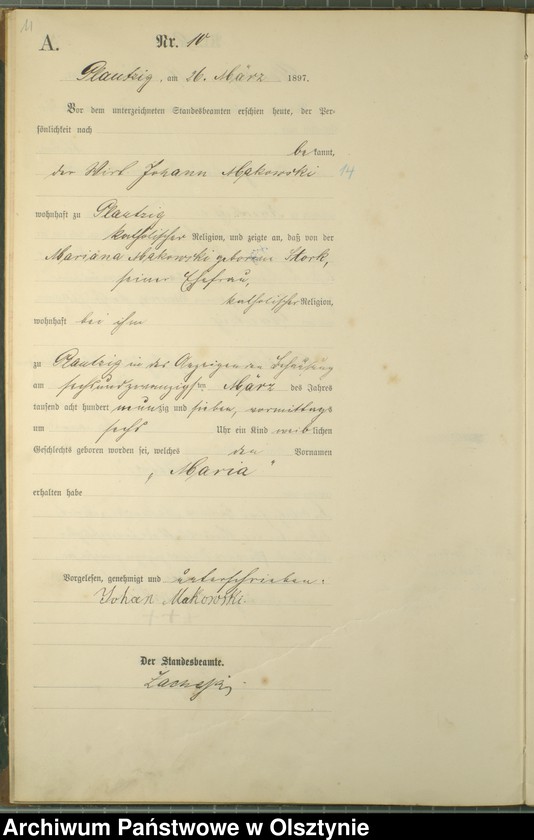 11
A.
Nr. 10
Plautzig, am 26. März 1897.
Vor dem unterzeichneten Standesbeamten erschien heute, der Per-
sönlichkeit nach
bekannt,
der Wirt Johann Makowski 14
wohnhaft zu Plautzig
katholischer Religion, und zeigte an, daß von der
Mariana Makowski geborenen
seiner Ehefrau,
katholischer Religion,
wohnhaft bei ihm
zu Plautzig in des Anzeigenden Behausung
am sechsundzwanzigsten März des Jahres
tausend acht hundert neunzig und sieben, vormittags
um sechs Uhr ein Kind weiblichen
Geschlechts geboren worden sei, welches den Vornamen
„Maria"
erhalten habe
Vorgelesen, genehmigt und unterschrieben:
Johan Makowski.
Der Standesbeamte.
Archiwum Państwowe w Olsztynie